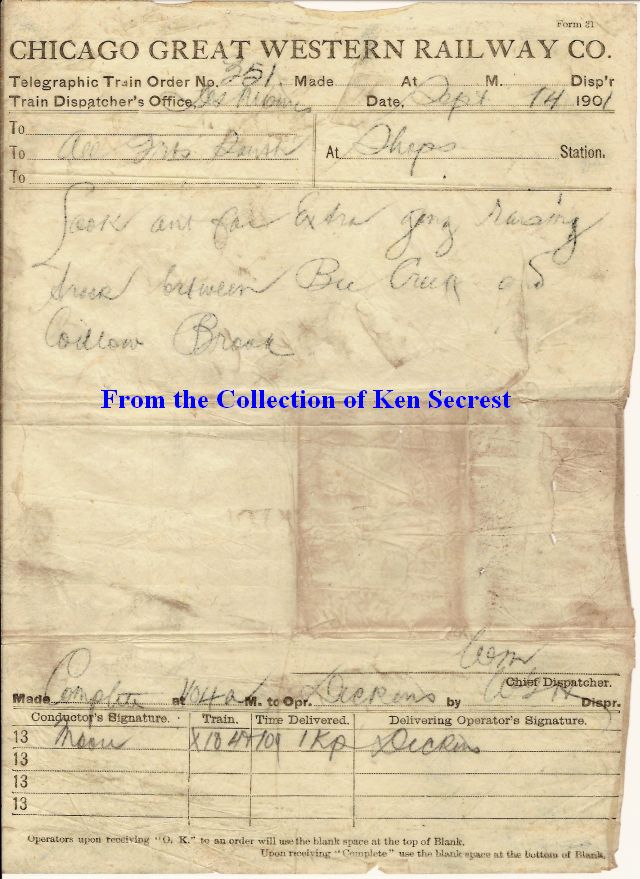 Form 31
CHICAGO GREAT WESTERN RAILWAY CO.
Telegraphic Train Order No. 251 Made At M. Disp'r
Train Dispatcher's Office, Des Moines Date, Sept 14 1901
To
To All Frts South At Shops Station.
To
Look out for Extra gang raising
track between Bee Creek and
Brook
From the Collection of Ken Secrest
Chief Dispatcher.
Made Complete at M. to Opr. Dickens by Dispr.
Conductor's Signature. Train. Time Delivered. Delivering Operator's Signature.
13 Moon Dickens
13
13
13
Operators upon receiving "O. K." to an order will use the blank space at the top of Blank.
Upon receiving "Complete" use the blank space at the bottom of Blank.